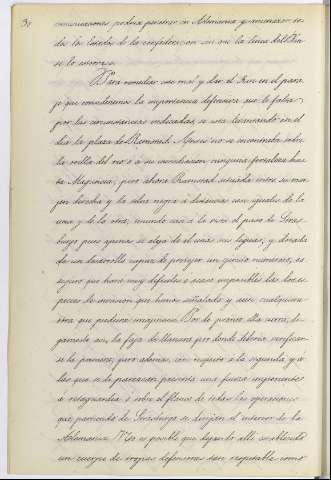 38
comunicaciones podria penetrar en Alemania y amenazar to-
da la de la confederacion sin que la linea del Rhin
se lo
Para remediar ese mal y dar al Rhin en el para-
je que consideramos la importancia defensiva que le falta
por las circunstancias indicadas, se está levantando en el
dia la plaza de Rastadt. Antes no se encontraba sobre
la orilla del rio ó á su inmediacion ninguna fortaleza has-
ta Maguncia; pero ahora Rastadt situada entre su mar-
jen derecha y la selva negra á distancias casi iguales de la
una y de la otra, cierra á la vez el paso de Stras-
burgo pues apenas se aleja de él unas seis leguas, y dotada
de un desarrollo capaz de proteger un ejército numeroso, es
seguro que hará muy dificiles ó acaso imposibles las dos es-
pecies de invasion que hemos señalado y aun cualquiera
otra que pudiera imaginarse. Por de pronto ella cierra, di-
gamoslo asi, la faja de llanura por donde deberia verificar-
se la primera; pero ademas, con respecto á la segunda y á
las que se le parezcan presenta una fuerza imponente
á retaguardia ó sobre el flanco de todas las operaciones
que partiendo de Strasburgo se dirijan al interior de la
Alemania. No es posible que dejando alli establecido
un cuerpo de tropas defensivas tan respetable como